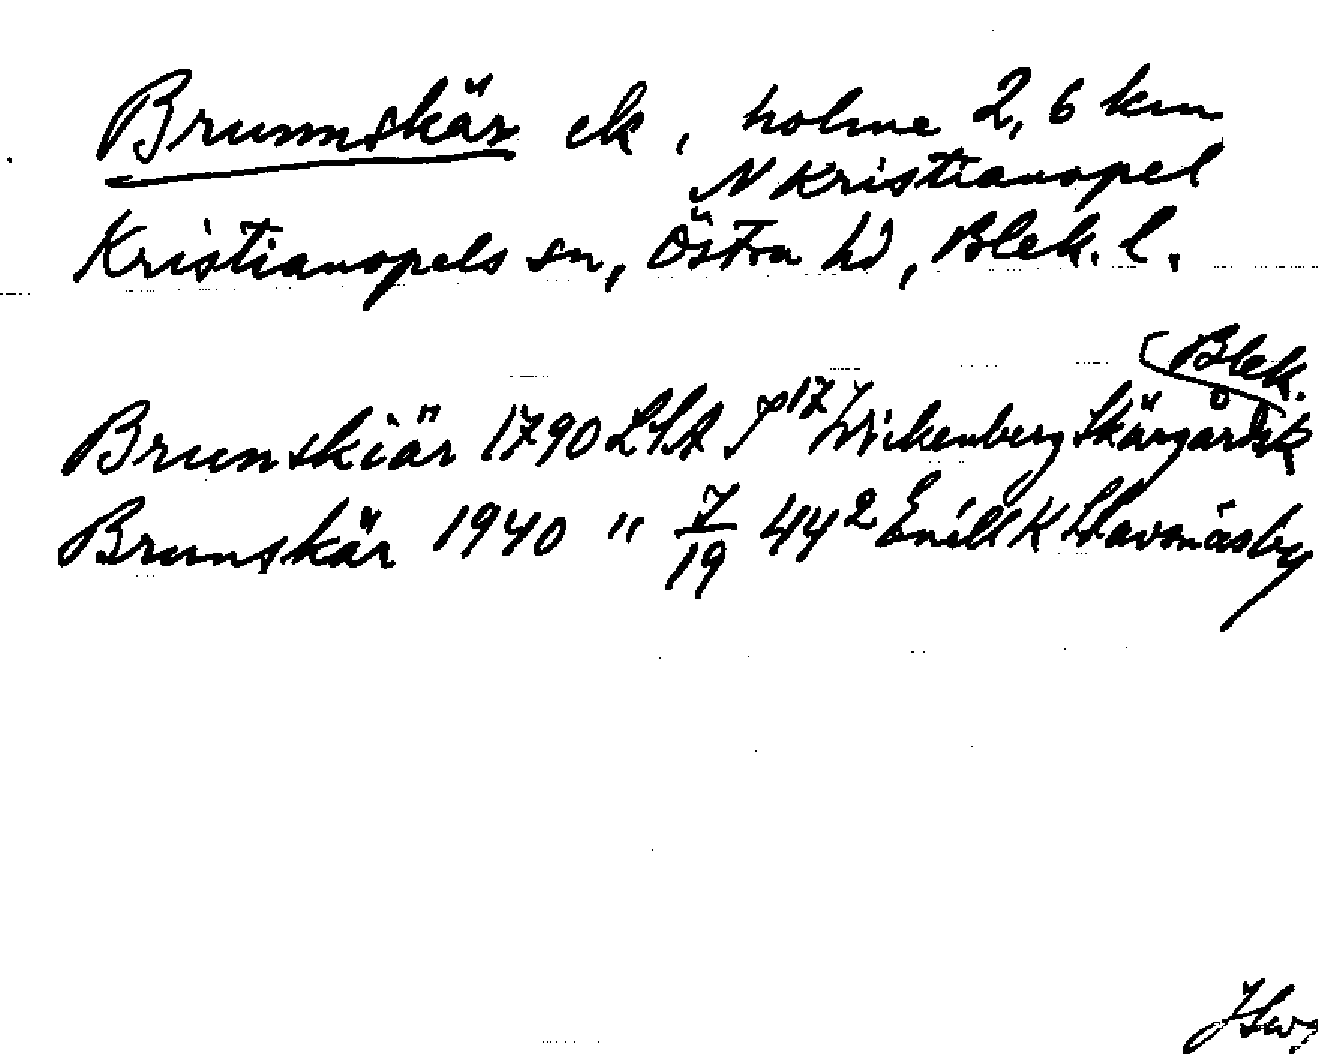 Brunnskär ek, holme 2,6 km
N Kristianopel
Kristianopels sn, Östra hd, Blek. l.
Blek.
Brunskiär 1790 LSA Wickenberg Skärgårdsk
Brunskär 1940 " 7/19 44² Enskk